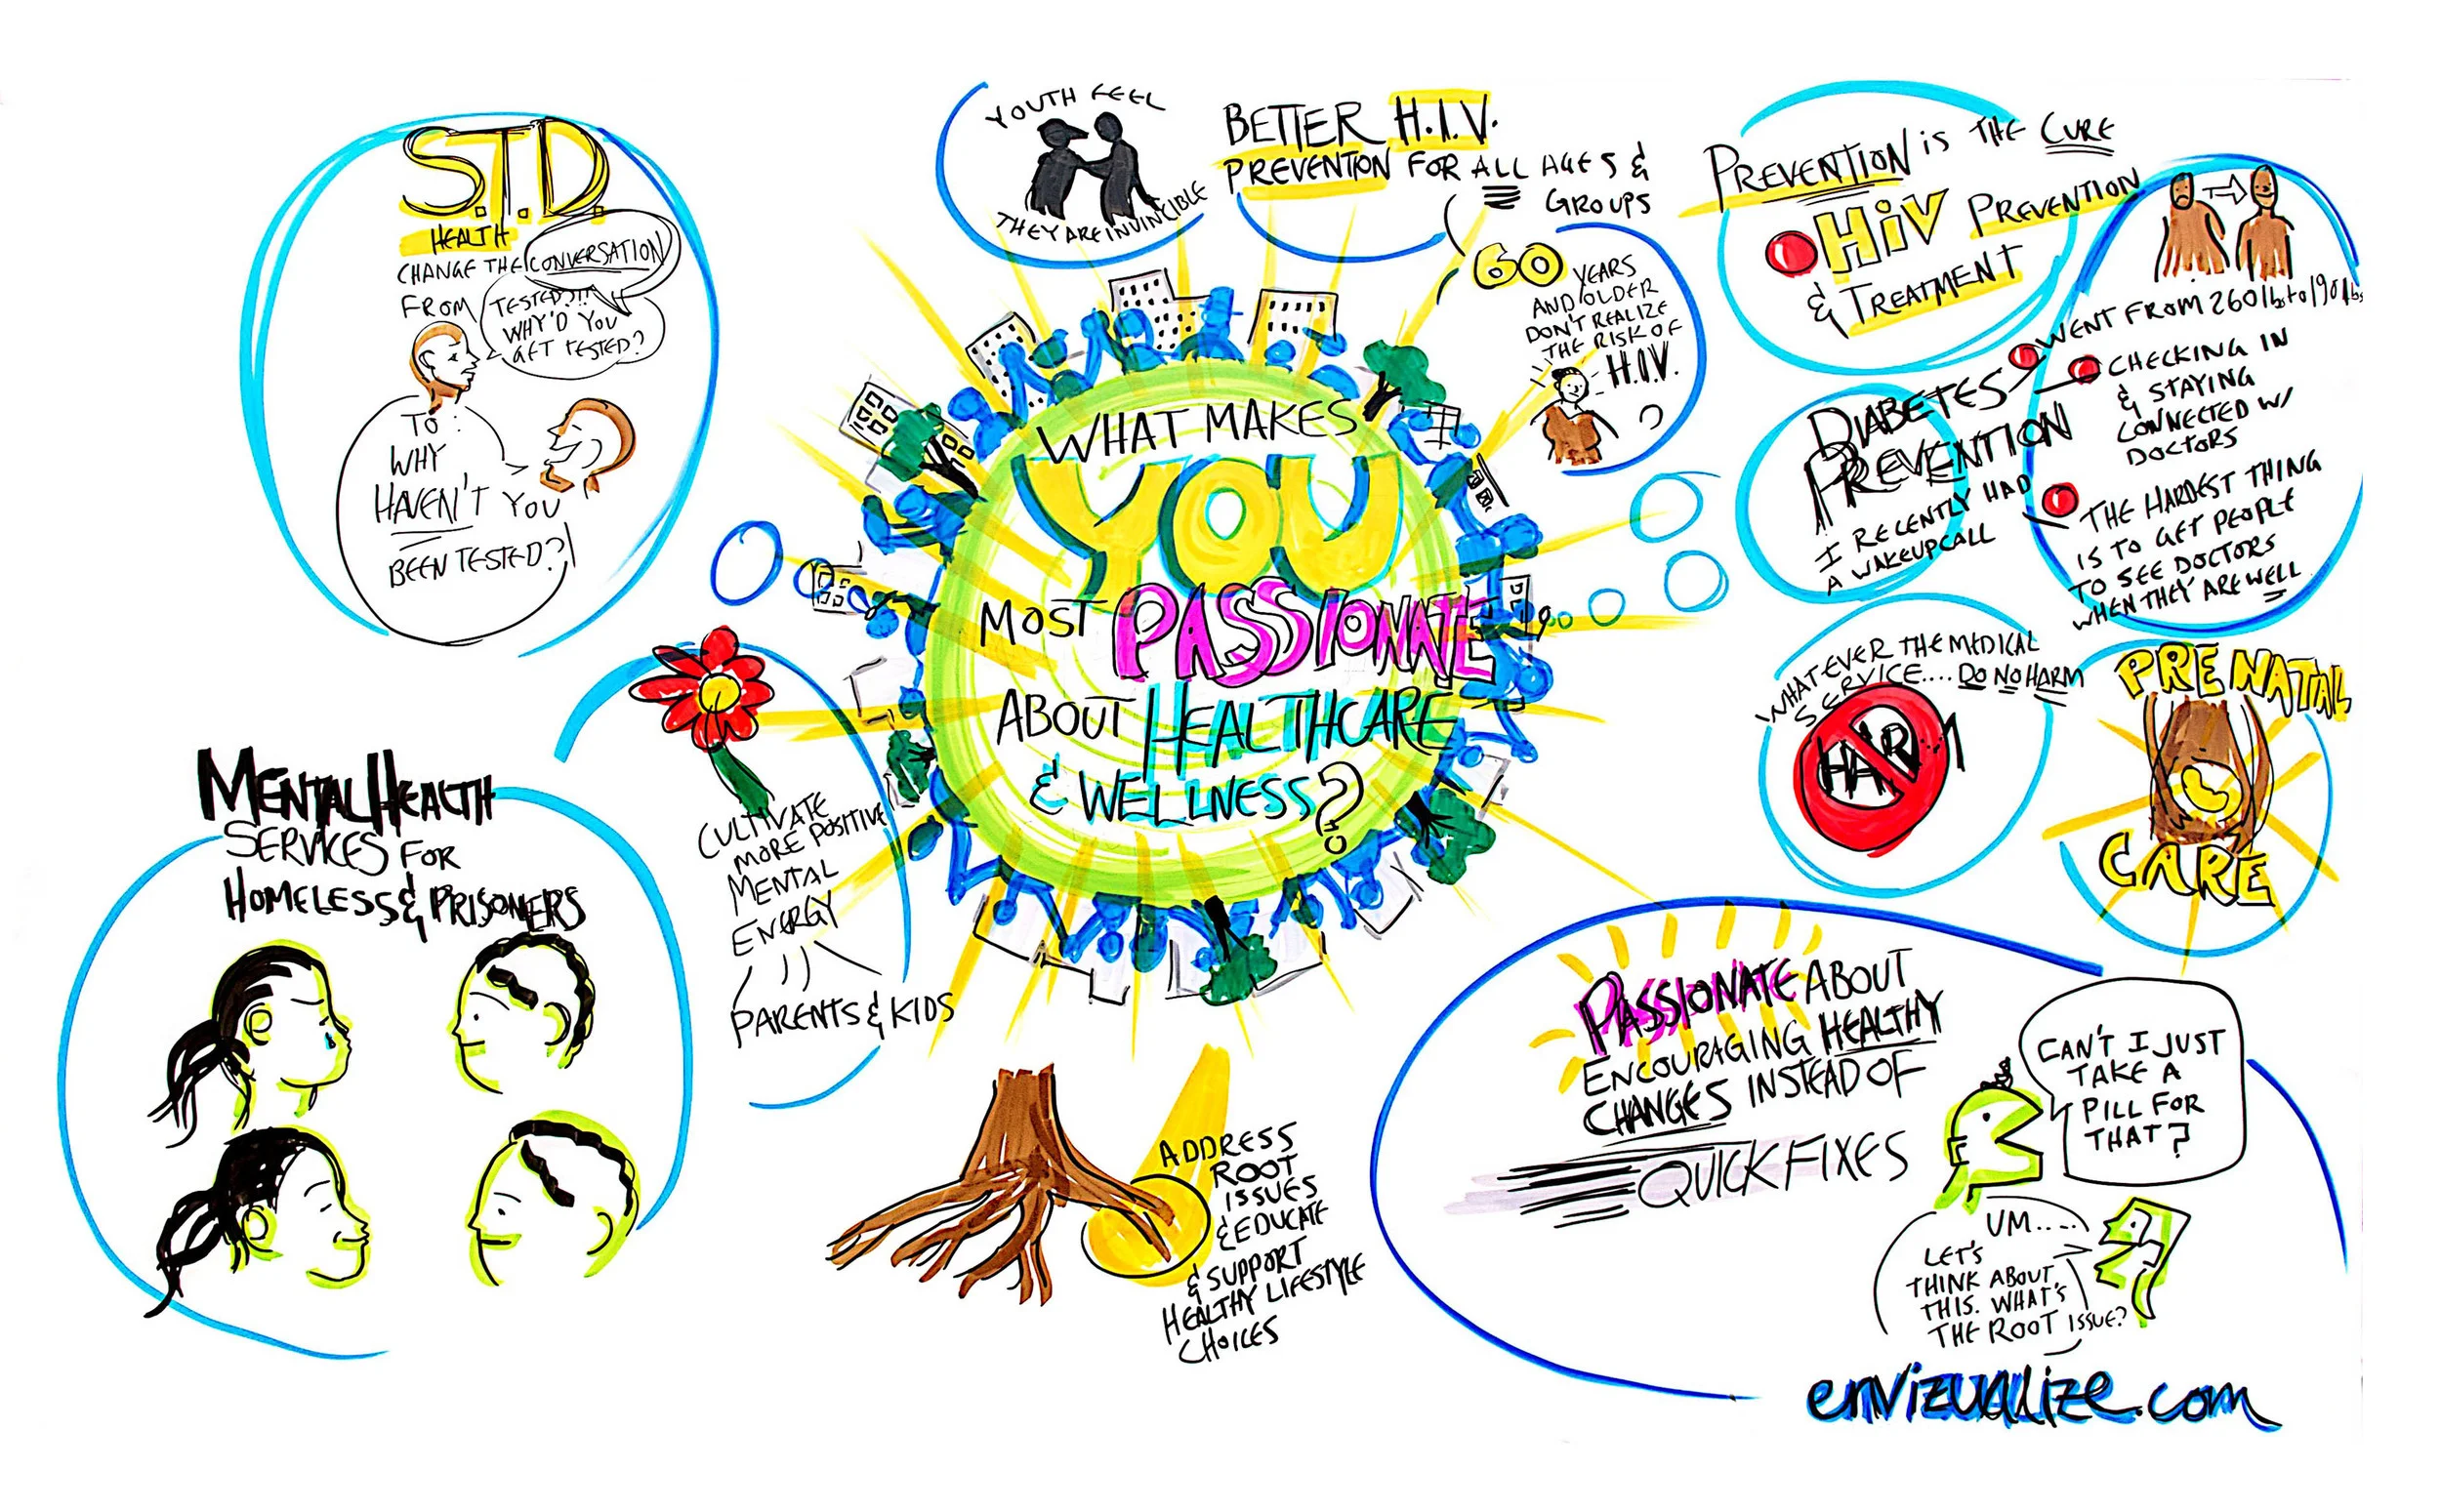 S.T.D.
HEALTH
CHANGE THE CONVERSATION
FROM
TESTED?!!
WHY'D YOU
GET TESTED?
TO:
WHY
HAVEN'T YOU
BEEN TESTED?!
YOUTH FEEL
THEY ARE INVINCIBLE
BETTER H.I.V.
PREVENTION FOR ALL AGES &
GROUPS
60 YEARS
AND OLDER
DON'T REALIZE
THE RISK OF
H.I.V.
?
PREVENTION IS THE CURE
HIV PREVENTION
& TREATMENT
DIABETES
PREVENTION
I RECENTLY HAD
A WAKEUP CALL
WENT FROM 260lbs to 190lbs
CHECKING IN
& STAYING
CONNECTED W/
DOCTORS
THE HARDEST THING
IS TO GET PEOPLE
TO SEE DOCTORS
WHEN THEY ARE WELL
WHAT MAKES
YOU
MOST PASSIONATE
ABOUT HEALTHCARE
& WELLNESS?
WHATEVER THE MEDICAL
SERVICE.... DO NO HARM
HARM
PRENATAL
CARE
MENTAL HEALTH
SERVICES FOR
HOMELESS & PRISONERS
CULTIVATE
MORE POSITIVE
MENTAL
ENERGY
PARENTS & KIDS
ADDRESS
ROOT
ISSUES
& EDUCATE
& SUPPORT
HEALTHY LIFESTYLE
CHOICES
PASSIONATE ABOUT
ENCOURAGING HEALTHY
CHANGES INSTEAD OF
QUICK FIXES
CAN'T I JUST
TAKE A
PILL FOR
THAT?
UM....
LET'S
THINK ABOUT
THIS. WHAT'S
THE ROOT ISSUE?
envizualize.com